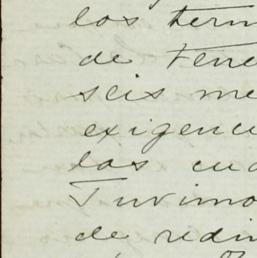 los term
de Fene
seis me
exigenc
las cua
Tuvimo
de redim